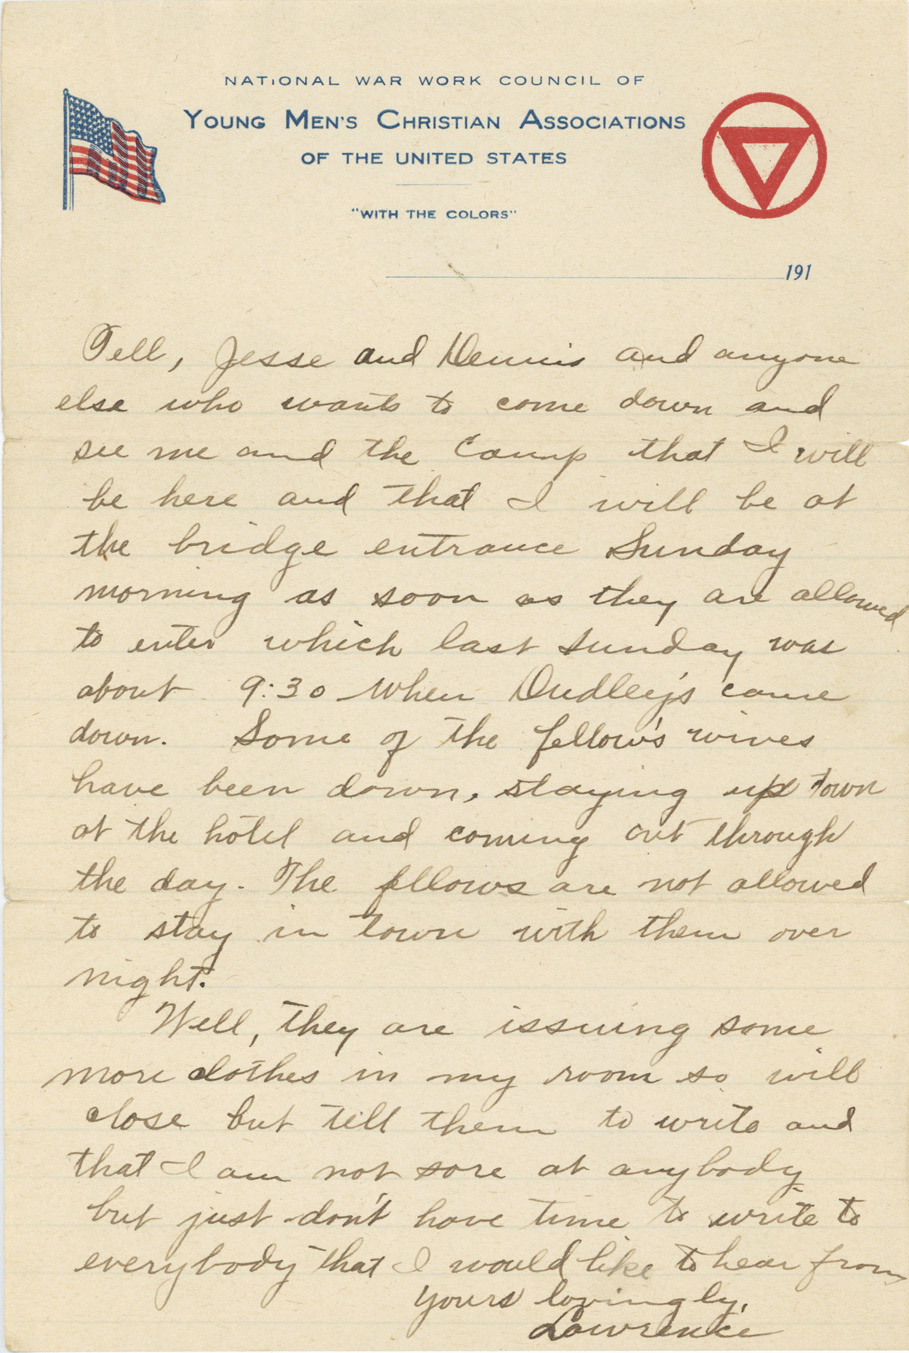 NATIONAL WAR WORK COUNCIL OF
YOUNG MEN'S CHRISTIAN ASSOCIATIONS
OF THE UNITED STATES
"WITH THE COLORS"
191
Tell, Jesse and Dennis and anyone
else who wants to come down and
see me and the Camp that I will
be here and that I will be at
the bridge entrance Sunday
morning as soon as they are allowed
to enter which last Sunday was
about 9:30 when Dudley's came
down. Some of the fellow's wives
have been down, staying up town
at the hotel and coming out through
the day. The fellows are not allowed
to stay in town with them over
night.
Well, they are issuing some
more clothes in my room so will
close but tell them to write and
that I am not sore at anybody
but just don't have time to write to
everybody that I would like to hear from
Yours lovingly,
Lawrence